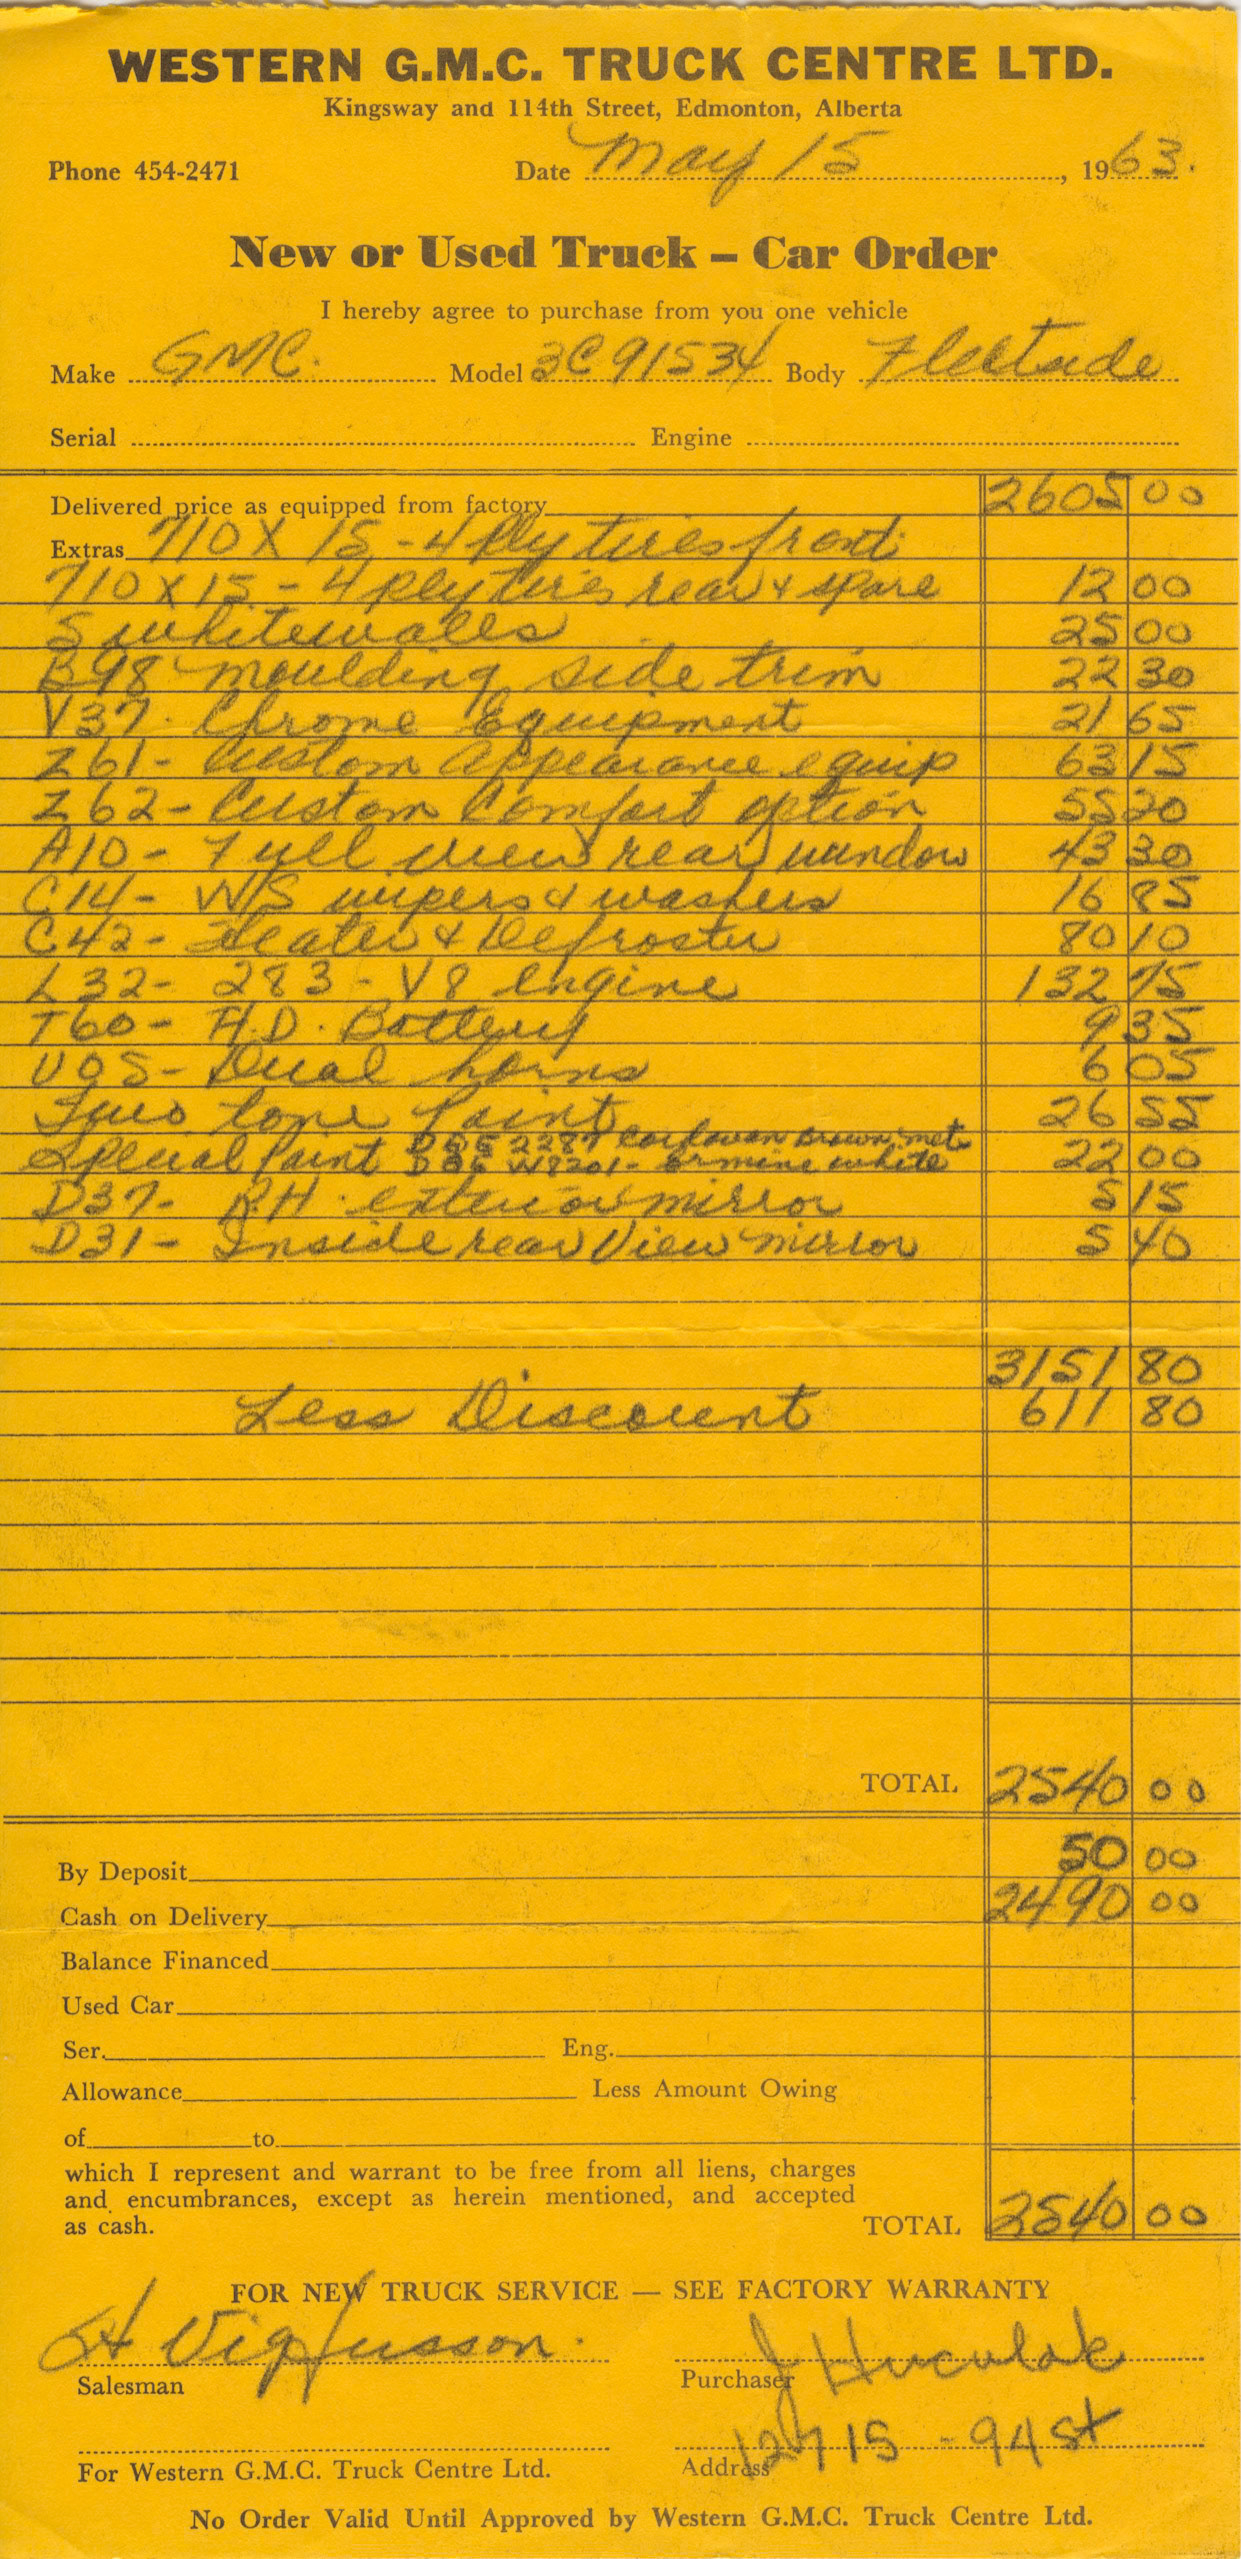 WESTERN G.M.C. TRUCK CENTRE LTD.
Kingsway and 114th Street, Edmonton, Alberta
Phone 454-2471 Date May 15, 1963.
New or Used Truck – Car Order
I hereby agree to purchase from you one vehicle
Make GMC. Model 3C91534 Body Fleetside
Serial Engine
Delivered price as equipped from factory 2605 00
Extras 710 X 15 - 4 Ply tires front
710 X 15 - 4 ply tires rear & spare 12 00
5 whitewalls 25 00
B98 moulding side trim 22 30
V37 - Chrome Equipment 21 65
Z61 - Custom Appearance equip 63 15
Z62 - Custom Comfort option 55 20
A10 - Full view rear window 43 30
C14 - W/S wipers & washers 16 85
C42 - Heater & Defroster 80 10
L32 - 283 - V8 engine 132 75
T60 - H.D. Battery 9 35
U05 - Dual horns 6 05
Two tone Paint 26 55
2287 Cordovan Brown met
Special Paint W8201 - Ermine white 22 00
D37 - R.H. exterior mirror 5 15
D31 - Inside rear View mirror 5 40
3151 80
Less Discount 611 80
TOTAL 2540 00
By Deposit 50 00
Cash on Delivery 2490 00
Balance Financed
Used Car
Ser. Eng.
Allowance Less Amount Owing
of to
which I represent and warrant to be free from all liens, charges
and encumbrances, except as herein mentioned, and accepted
as cash. TOTAL 2540 00
FOR NEW TRUCK SERVICE — SEE FACTORY WARRANTY
Vigfusson. J Huculak
Salesman Purchaser
12715 - 94 St
For Western G.M.C. Truck Centre Ltd. Address
No Order Valid Until Approved by Western G.M.C. Truck Centre Ltd.